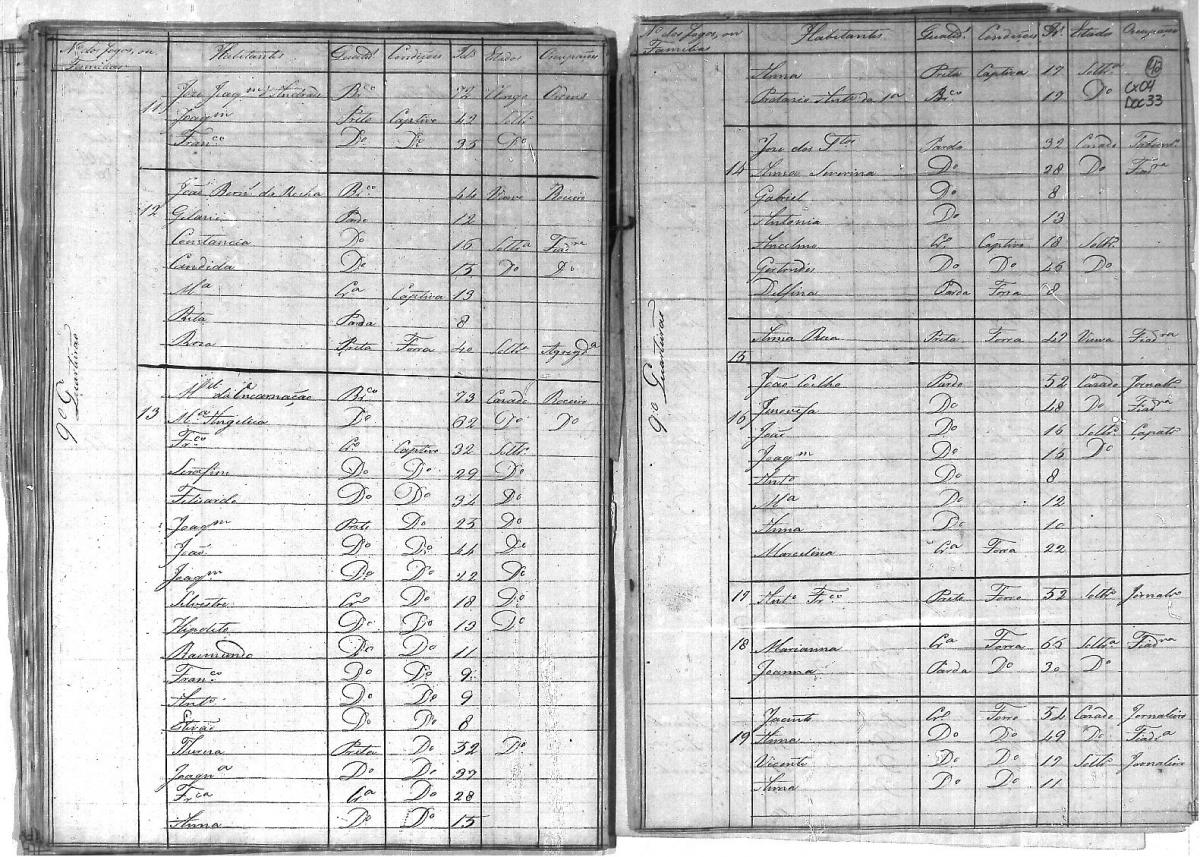 Nº dos Fogos, ou Familias Habitantes Qualid.ᵉ Condições Id.ᵉ Estados Occupações
9º Quarteirão
11 José Joaq.ᵐ d'Andrade Br.ᶜᵒ 72
Joaq.ᵐ Preto Captivo 42 Soltº
Fran.ᶜᵒ Dº Dº 35 Dº
12 João Bern.ᵈ da Rocha Br.ᶜᵒ 44 Viuvo Roceiro
12
Constancia Dº 16 Solt.ᵃ Fiad.ʳᵃ
Candida Dº 15 Dº Dº
M.ᵃ Cr.ᵃ Captiva 13
Rita Parda 8
Roza Preta Forra 40 Solt.ᵃ Agregd.ᵃ
13 M.ᵉˡ da Encarnação Br.ᶜᵒ 73 Casado Roceiro
M.ᵃ Angelica Dº 62 Dº Dº
Fr.ᶜᵒ Cr.º Captivo 32 Soltº
Serafim Dº Dº 29 Dº
Felisardo Dº Dº 34 Dº
Joaq.ᵐ Preto Dº 25 Dº
João Dº Dº 44 Dº
Joaq.ᵐ Dº Dº 42 Dº
Silvestre Cr.º Dº 18 Dº
Hipolito Dº Dº 13 Dº
Raimundo Dº Dº 11
Fran.ᶜᵒ Dº Dº 9
Antº Dº Dº 9
Estevão Dº Dº 8
Thereza Preta Dº 52 Dº
Joaqn.ᵃ Dº Dº
Fr.ᶜᵃ Cr.ᵃ Dº 28
Anna Dº Dº 15
Nº dos Fogos, ou Familias Habitantes Qualid.ᵉ Condições Id.ᵉ Estado Occupação
40
CX04
DOC 33
9º Quarteirão
Anna Preta Captiva 17 Solt.ᵃ
Br.ᶜᵒ 12 Dº
14 José dos St.ᵒˢ Pardo 32 Casado
Anna Severina Dº 28 Dº Fiad.ʳᵃ
Gabriel Dº 8
Antonia Dº 13
Ancelmo Cr.º Captivo 18 Soltº
Gertrudes Dº Dº 46 Dº
Delfina Parda Forra 8
15 Anna Roza Preta Forra 42 Viuva Fiad.ʳᵃ
16 João Coelho Pardo 52 Casado Jornalº
Genovefa Dº 48 Dº Fiad.ʳᵃ
João Dº 16 Soltº Çapatº
Joaq.ᵐ Dº 15 Dº
Antº Dº 8
M.ᵃ Dº 12
Anna Dº 10
Marcelina Cr.ᵃ Forra 22
17 Antº Fr.ᶜᵒ Preto Forro 52 Soltº Jornalº
18 Marianna Cr.ᵃ Forra 66 Solt.ᵃ Fiad.ʳᵃ
Joanna Parda Dº 30 Dº
19 Jacinto Cr.º Forro 54 Casado Jornaleiro
Anna Dº Dº 49 Dº Fiad.ʳᵃ
Vicente Dº Dº 12 Soltº Jornaleiro
Anna Dº Dº 11